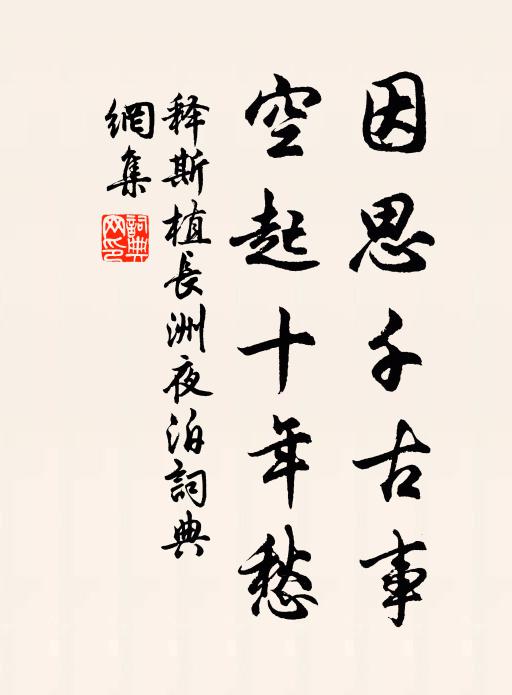 因思千古事
空起十年愁
释斯植長洲夜泊詞典
網集
詞典網印